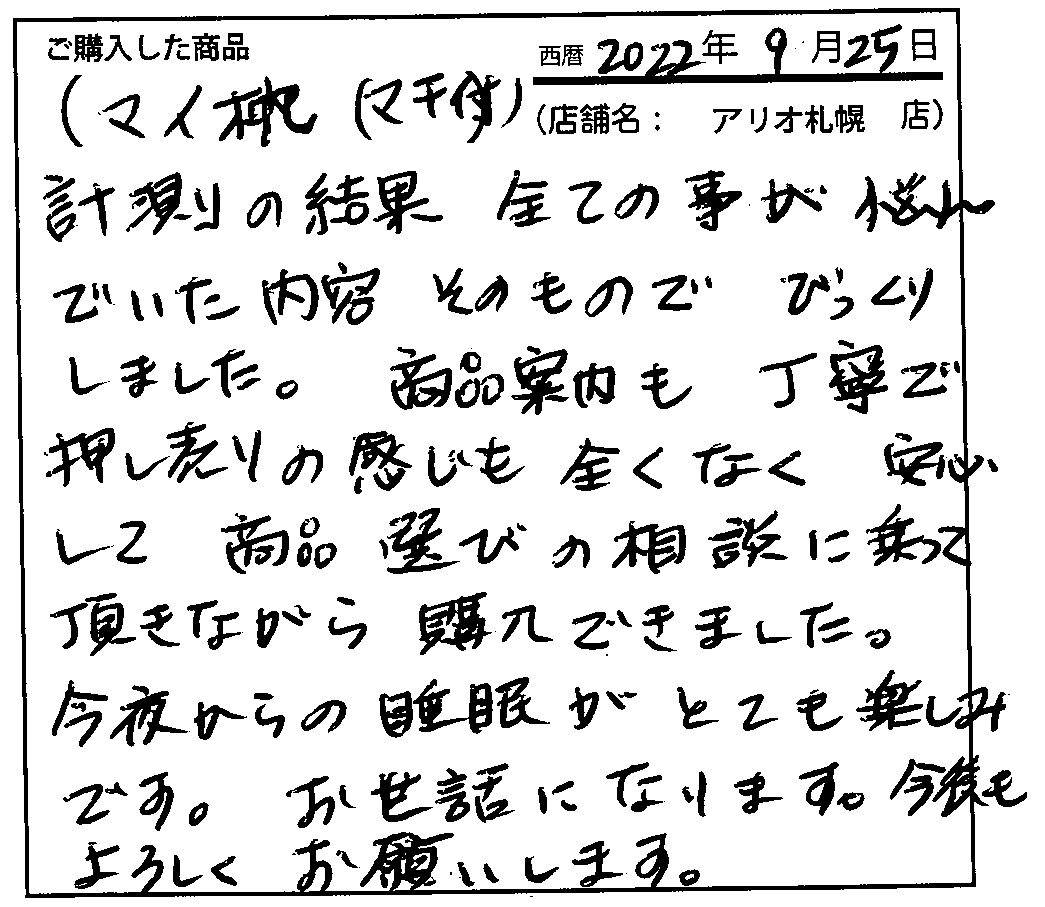 ご購入した商品
西暦 2022年 9月25日
(マイ枕 (マチ付)
(店舗名: アリオ札幌 店)
計測りの結果 全ての事が 悩ん
でいた内容 そのもので びっくり
しました。 商品案内も 丁寧で
押し売りの感じも 全くなく 安心
して 商品 選びの相談に乗って
頂きながら 購入できました。
今夜からの睡眠が とても楽しみ
です。 お世話になります。今後も
よろしく お願いします。